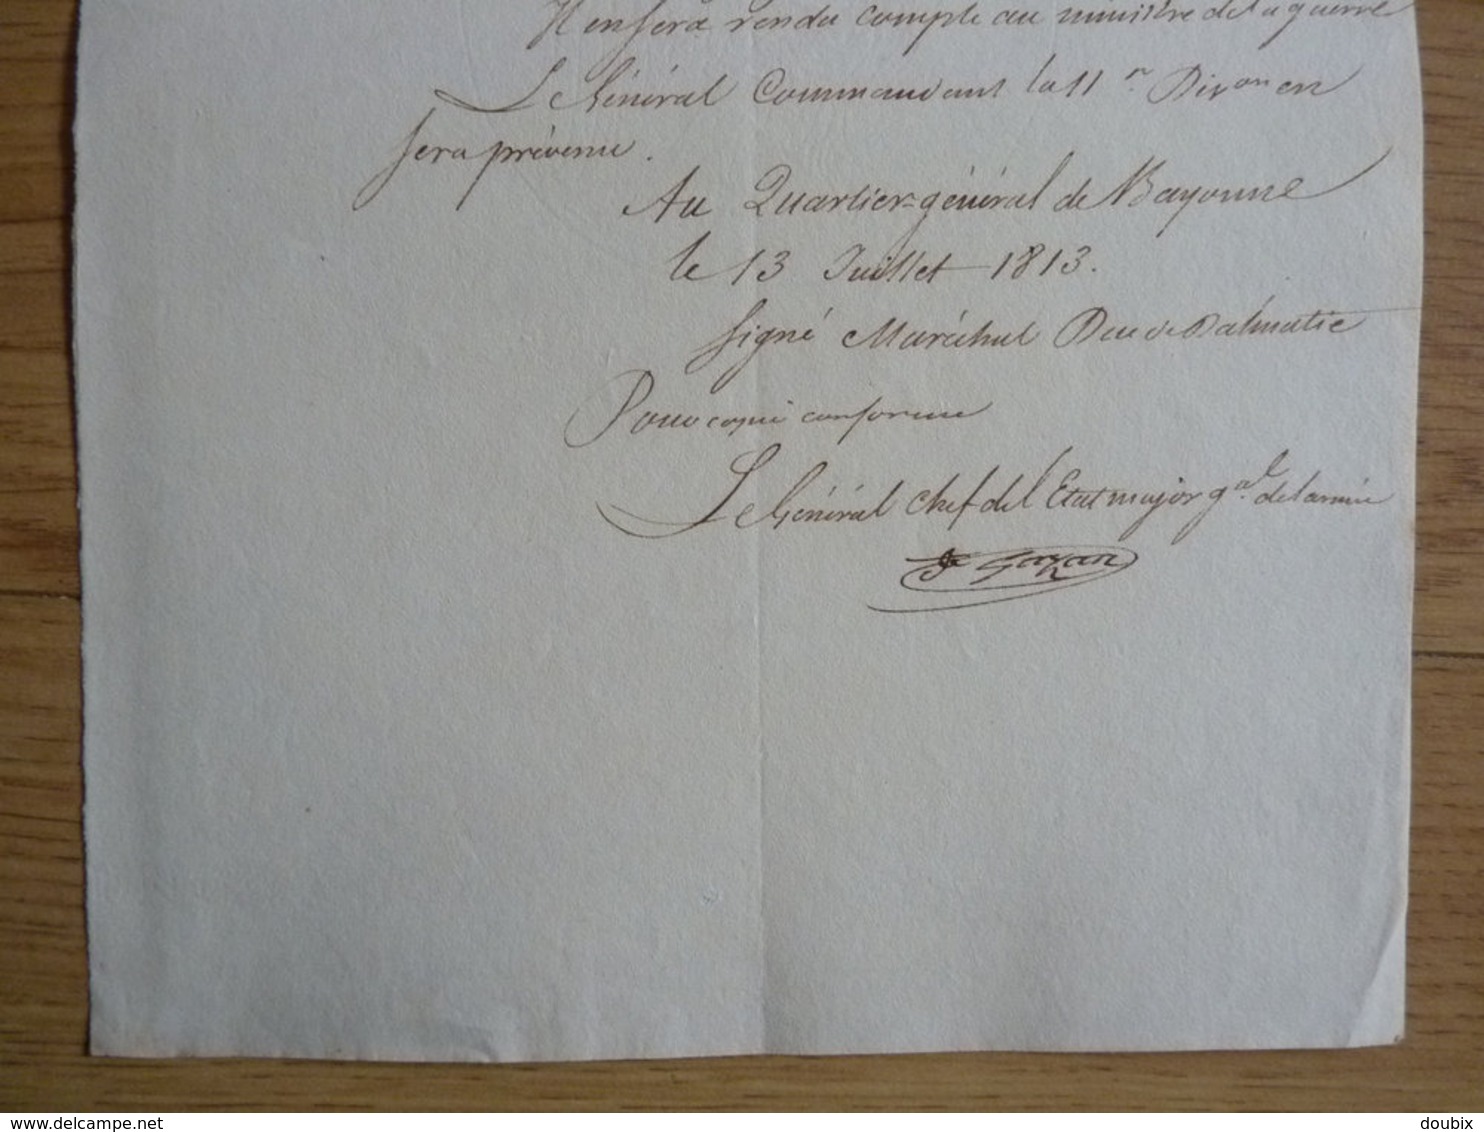 Il en sera rendu compte au ministre de la guerre
Le Général Commandant la 11e Divon en
sera prévenu.
Au Quartier=général de Bayonne
le 13 Juillet 1813.
Signé Maréchal Duc de Dalmatie
Pour copie conforme
Le Général Chef de l'Etat major gal. de l'armée
Cte Gazan
delcampe.net
doubix